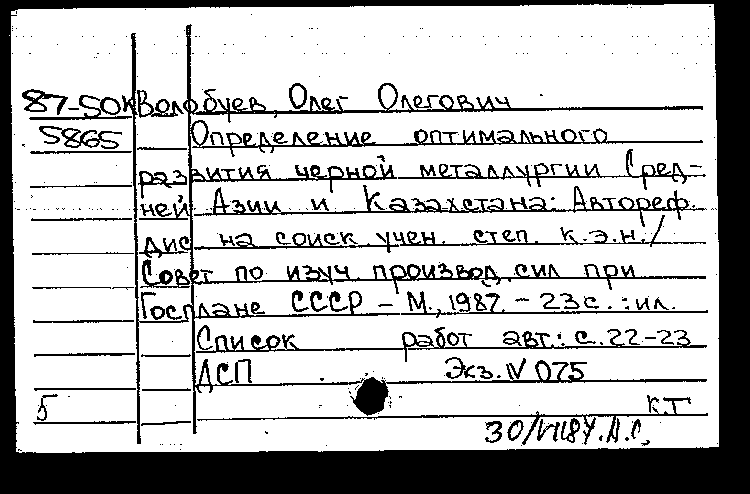 87-50К Волобуев, Олег Олегович
5865 Определение оптимального
развития черной металлургии Сред-
ней Азии и Казахстана: Автореф.
дис на соиск учен. степ. к.э.н./
Совет по изуч. производ. сил при
Госплане СССР - М., 1987. - 23 с. : ил.
Список работ авт.: с. 22-23
ДСП Экз. № 075
Б К.Т